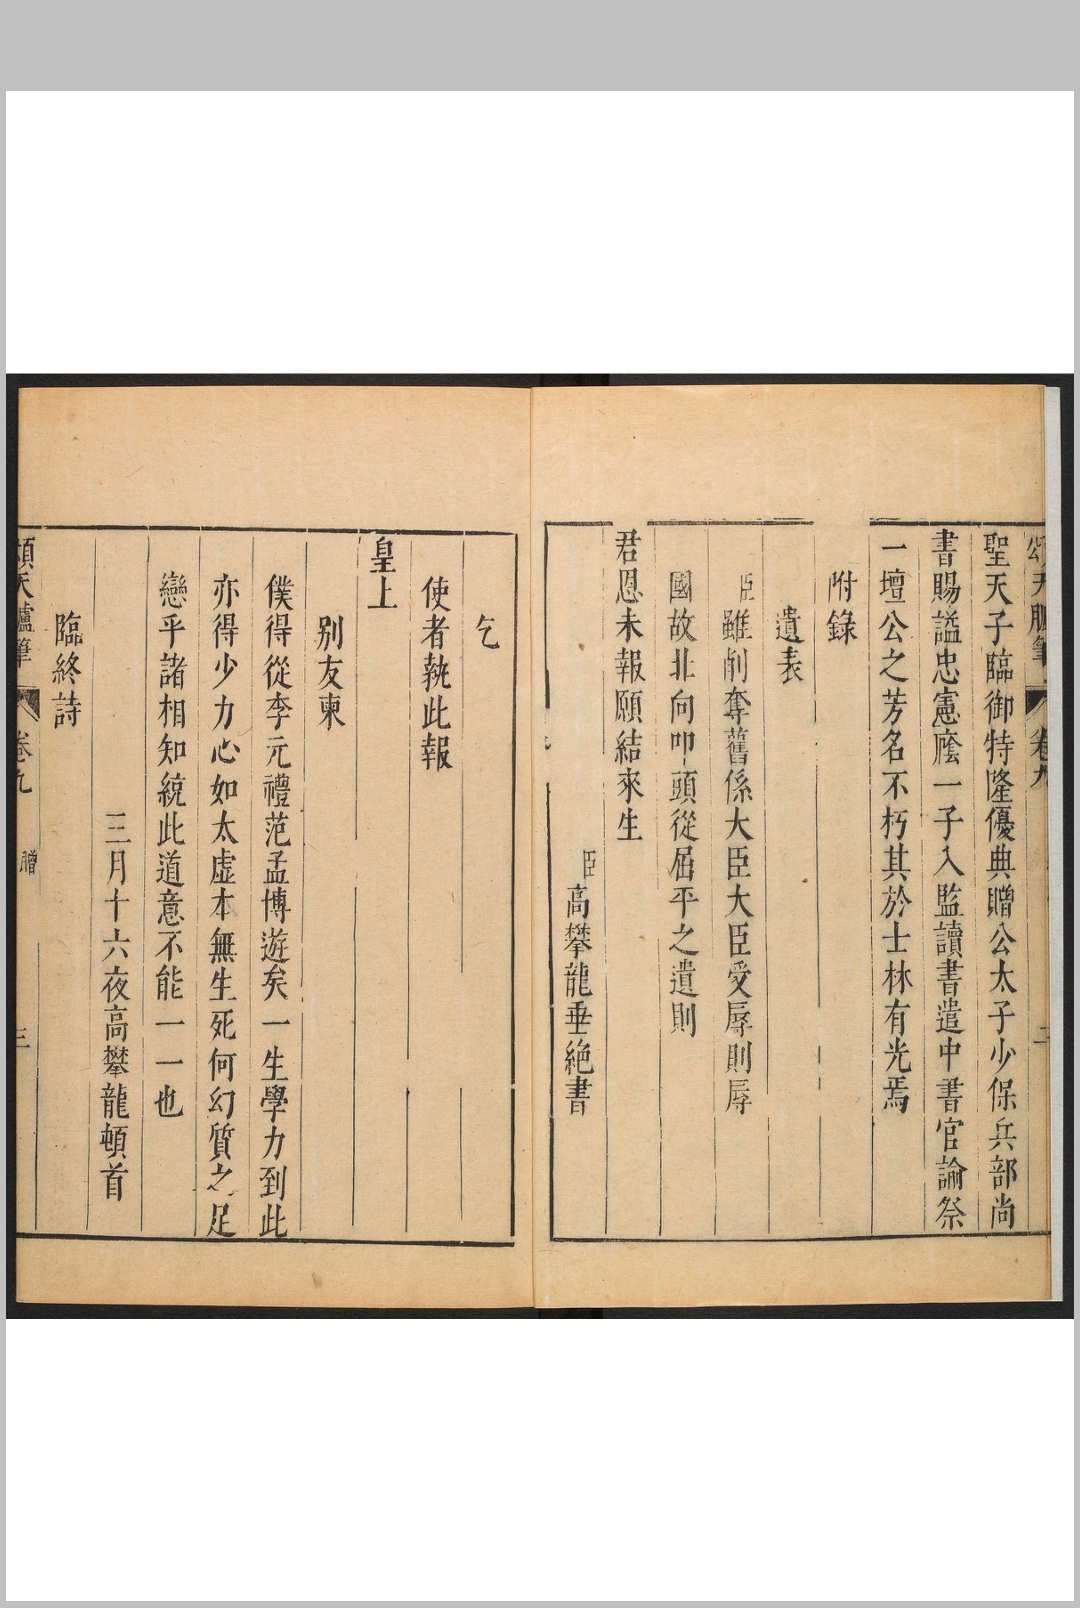 頌天臚筆 卷九 二
聖天子臨御特隆優典贈公太子少保兵部尚
書賜諡忠憲廕一子入監讀書遣中書官諭祭
一壇公之芳名不朽其於士林有光焉
附錄
遺表
臣雖削奪舊係大臣大臣受辱則辱
國故北向叩頭從屈平之遺則
君恩未報願結來生
臣高攀龍垂絶書
乞
使者執此報
皇上
别友柬
僕得從李元禮范孟博遊矣一生學力到此
亦得少力心如太虚本無生死何幻質之足
戀乎諸相知統此道意不能一一也
三月十六夜高攀龍頓首
臨終詩
頌天臚筆 卷九 贈 三